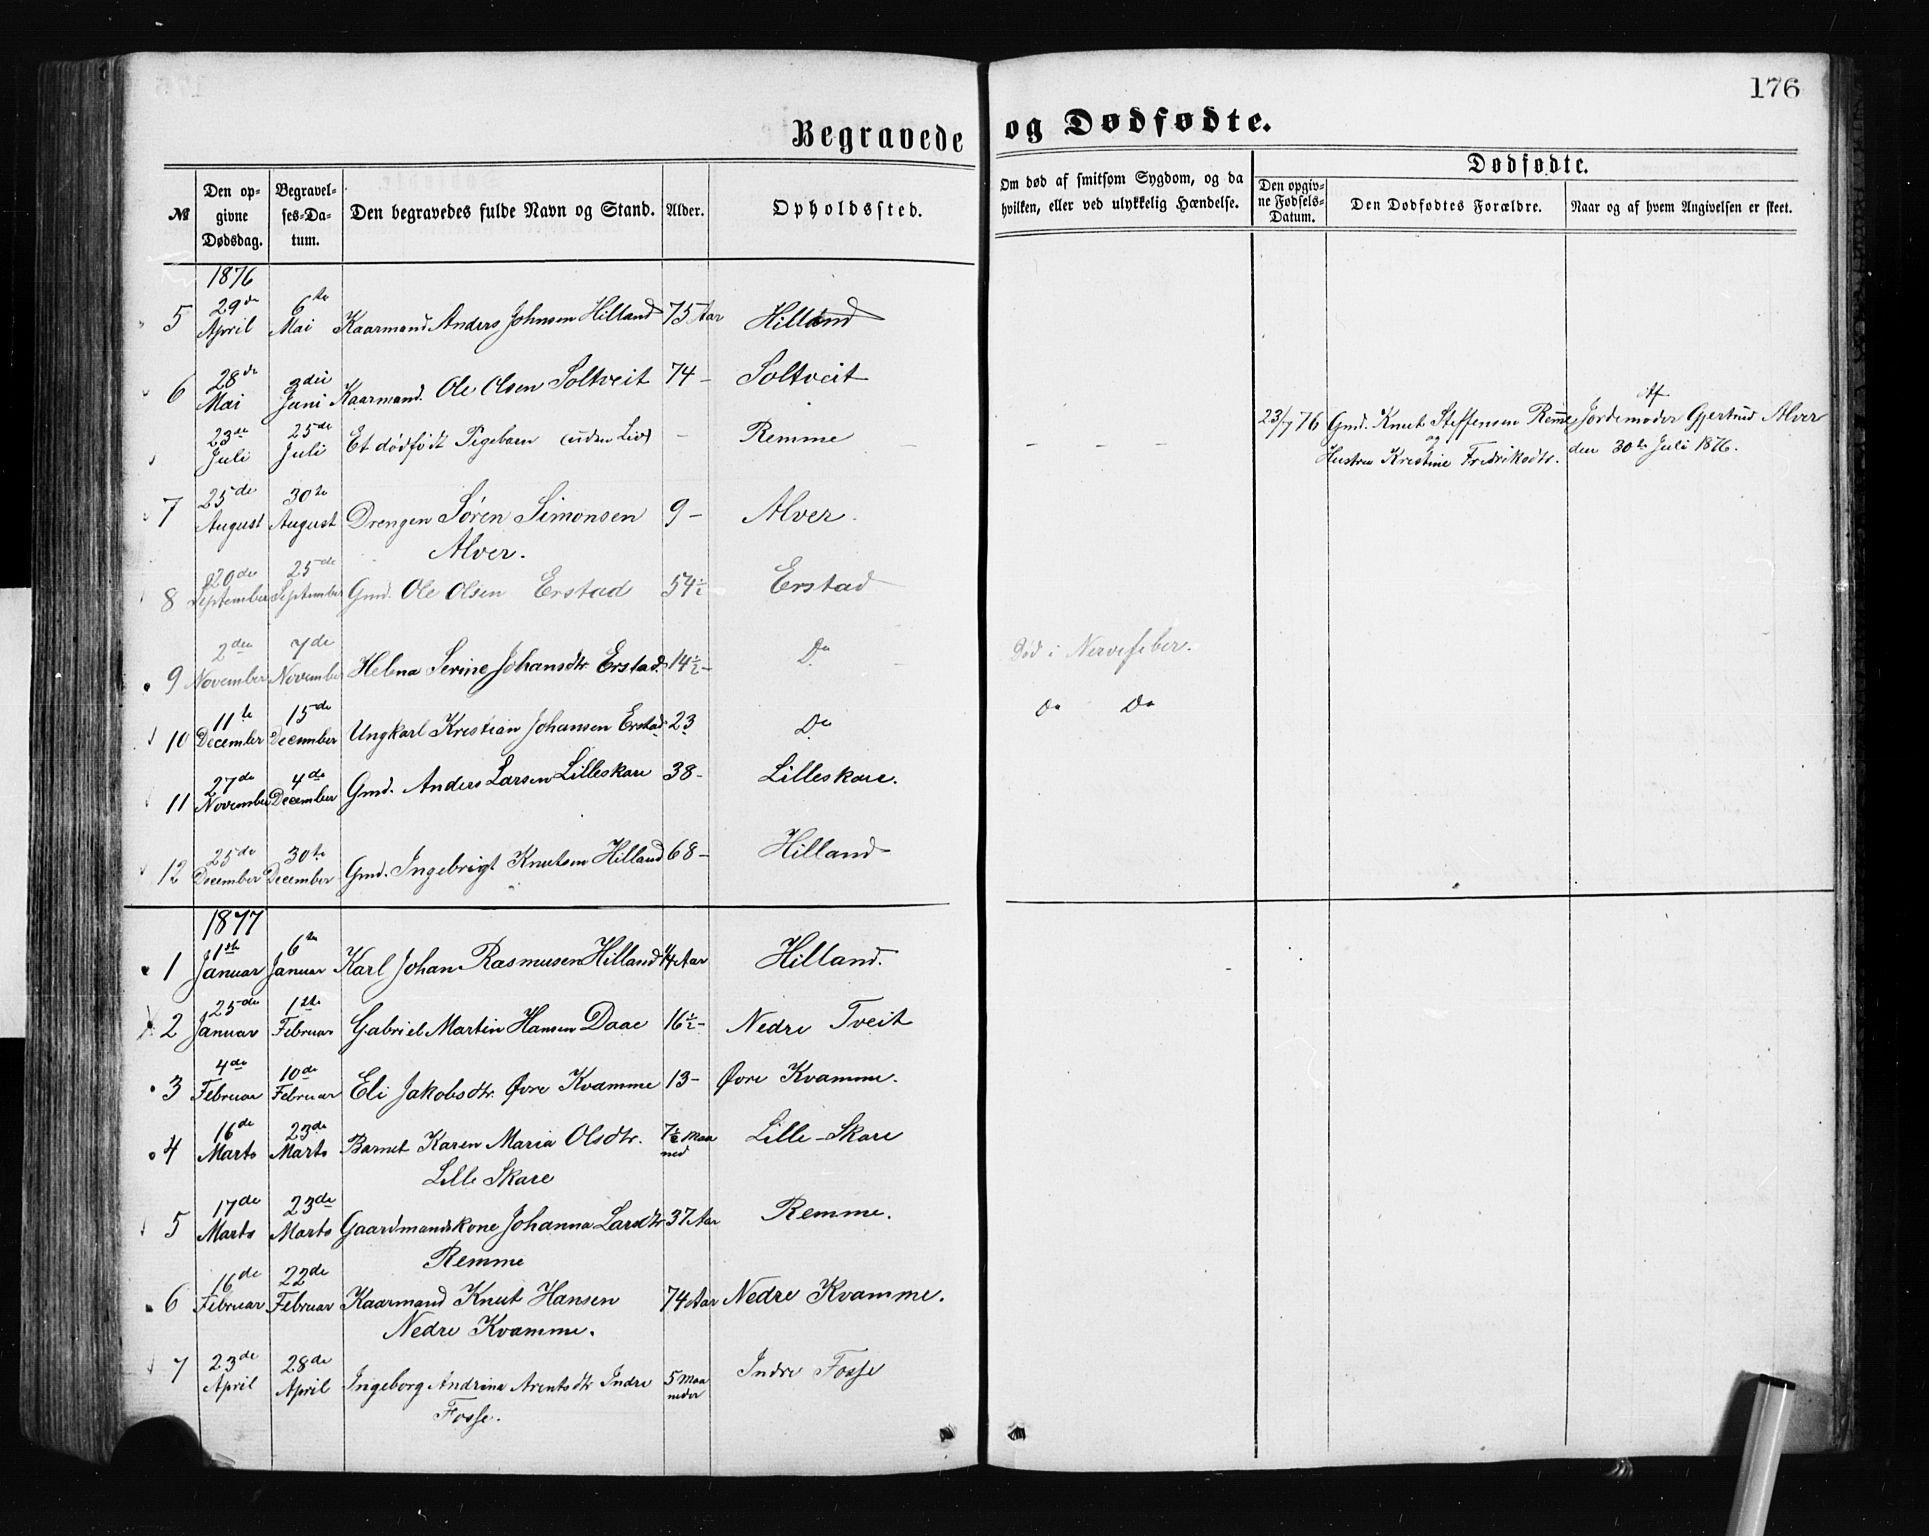 176
Begravede og Dødfødte.
№
Den opgivne Dødsdag.
Begravelses-Datum.
Den begravedes fulde Navn og Stand.
Alder.
Opholdssted.
Om død af smitsom Sygdom, og da hvilken, eller ved ulykkelig Hændelse.
Dødfødte.
Den opgivne Fødsels-Datum.
Den Dødfødtes Forældre.
Naar og af hvem Angivelsen er skeet.
1876
5 29de April 6te Mai Kaarmand Anders Johnsen Hilland 75 Aar Hilland
6 28de Mai 3die Juni Kaarmand Ole Olsen Soltveit 74 - Soltveit
23de Juli 25de Juli Et dødfødt Pigebarn (uden Liv) - Remme - - - 23/7 76 Gmd. Knut Steffensen Remme og Hustru Kristine Fredriksdtr. Af Jordemoder Gjertrud Alver den 30te Juli 1876.
7 25de August 30te August Drengen Søren Simonsen 9 - Alver.
Alver.
8 20de September 25de September Gmd. Ole Olsen Erstad 54½ Erstad
9 2den November 7de November Helena Serine Johansdtr Erstad. 14½ - Do Død i Nervefeber.
10 11te December 15de December Ungkarl Kristian Johansen Erstad 23 Do Do Do
11 27de November 4de December Gmd. Anders Larsen Lilleskare 38 - Lilleskare.
12 25de December 30te December Gmd. Ingebrigt Knutsen Hilland 68 - Hilland
1877
1 1ste Januar 6te Januar Karl Johan Rasmusen Hilland 14 Aar Hilland.
2 25de Januar 1ste Februar Gabriel Martin Hansen Daae 16½ - Nedre Tveit
3 4de Februar 10de Februar Eli Jakobsdtr. Øvre Kvamme 13 - Øvre Kvamme.
4 16de Marts 23de Marts Barnet Karen Maria Olsdtr. 7½ Maaned Lille-Skare
Lille Skare
5 17de Marts 23de Marts Gaardmandskone Johanna Larsdtr 37 Aar Remme.
Remme
6 16de Februar 22de Februar Kaarmand Knut Hansen 74 Aar Nedre Kvamme.
Nedre Kvamme.
7 23de April 28de April Ingeborg Andrina Arentsdtr Indre 5 Maaneder Indre Fosse
Fosse.